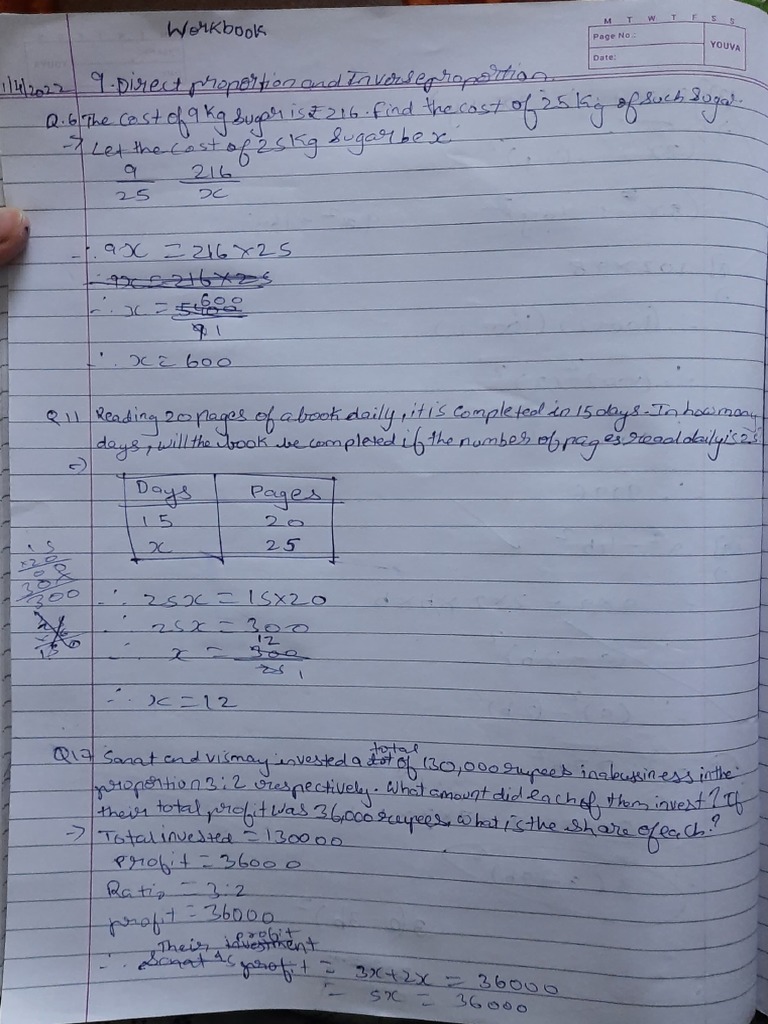 Workbook
M T W T F S S
Page No.:
Date:
YOUVA
1/4/2022
9. Direct proportion and Inverse proportion.
Q.6 The cost of 9 Kg sugar is ₹ 216. find the cost of 25 Kg of such sugar.
→ Let the cost of 25 Kg sugar be x
9 216
25 x
∴ 9x = 216 × 25
∴ 9x = 216 × 25
600
∴ x = 5400
9 1
∴ x = 600
Q 11 Reading 20 pages of a book daily, it is completed in 15 days. In how many
days, will the book be completed if the number of pages read daily is 25
⇒
Days Pages
15 20
x 25
15
×20
00
30x
300
∴ 25x = 15×20
∴ 25x = 300
12
∴ x = 300
25 1
∴ x = 12
total
Q17 Sanat and vismay invested a of 130,000 rupees in a bussiness in the
proportion 3:2 respectively. What amount did each of them invest? If
their total profit was 36,000 rupees, what is the share of each?
→ Total invested = 130000
Profit = 36000
Ratio = 3:2
profit = 36000
profit
Their investment
∴ Sanat's profit = 3x+2x = 36000
= 5x = 36000